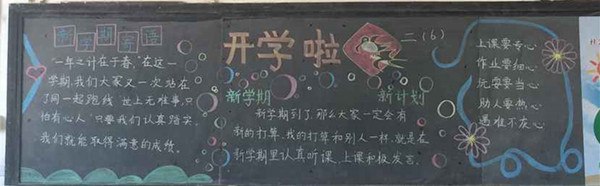 新学期寄语
"一年之计在于春,"在这一
学期我们大家又一次站在
了同一起跑线,世上无难事,只
怕有心人,只要我们认真踏实,
我们就能取得满意的成绩。
开学啦
二(6)
新学期 新计划
新学期到了,那么大家一定会有
新的打算,我的打算和别人一样,就是在
新学期里认真听课,上课积极发言。
上课要专心
作业要细心
玩耍要当心
助人要热心
遇难不灰心